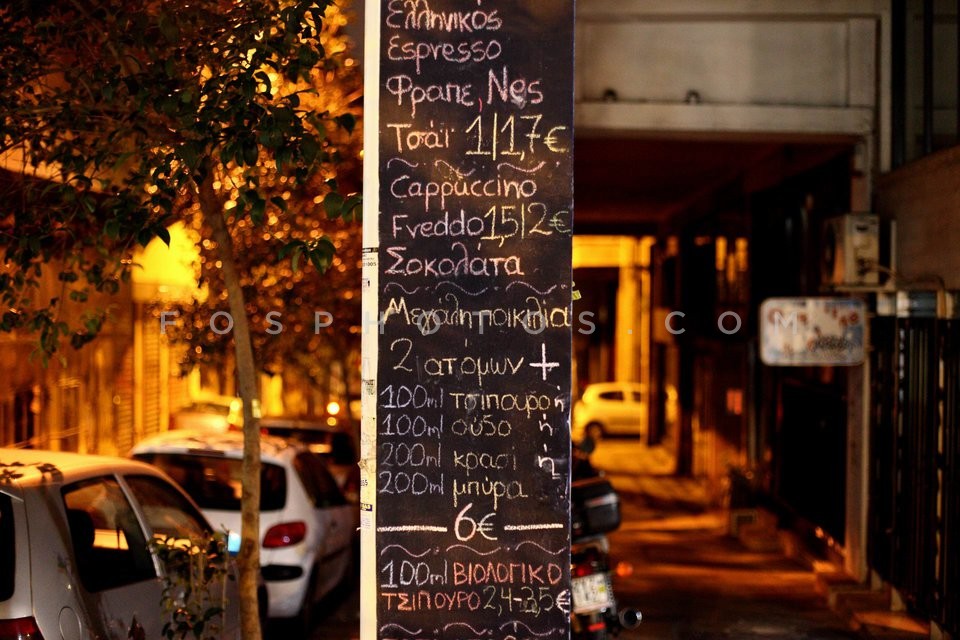 Ελληνικός
Espresso
Φραπέ, Νes
Τσάϊ 1/1,7€
Cappuccino
Freddo 1,5/2€
Σοκολατα
Μεγάλη ποικιλία
2 ατόμων +
100ml τσιπουρο ή
100ml ούδο ή
200ml κρασί ή
200ml μπύρα
6€
100ml ΒΙΟΛΟΓΙΚΟ
ΤΣΙΠΟΥΡΟ 2,4-3,5€
FOSPHOTOS.COM